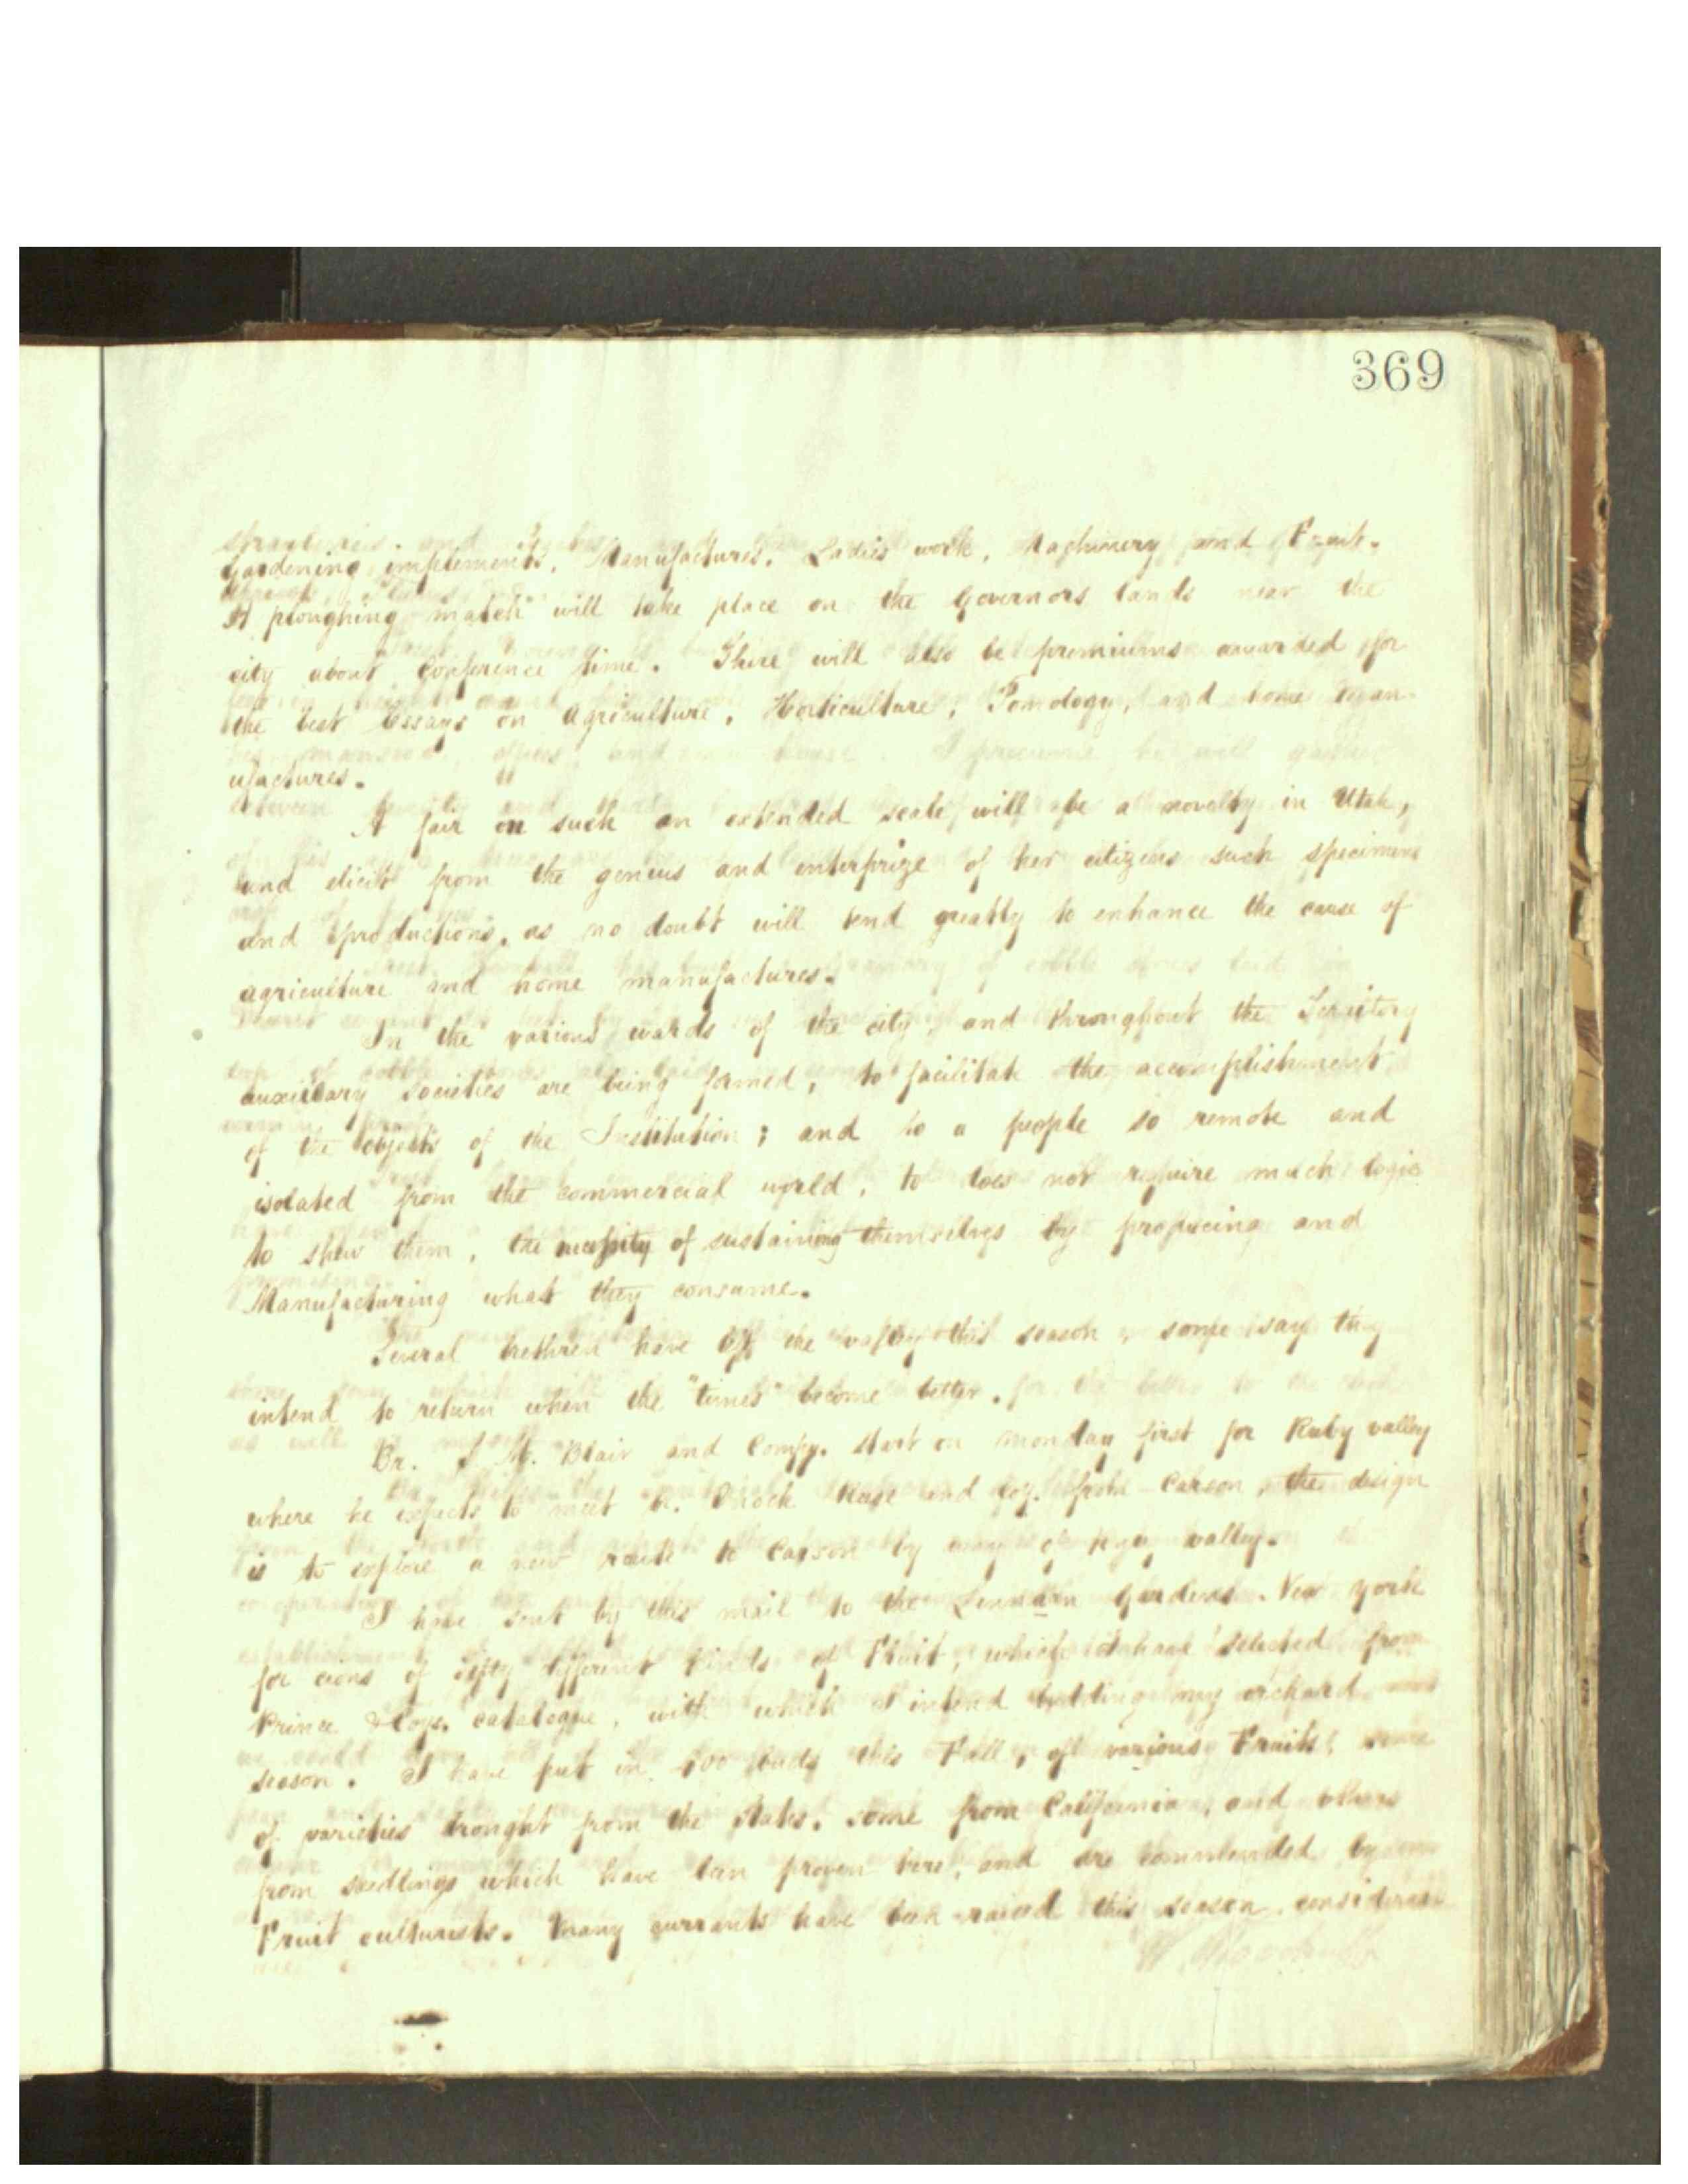 369
gardening implements, Manufactures, Ladies work, Machinery and Fruit.
A ploughing match will take place on the Governors lands near the
city about conference time. There will also be premiums awarded for
the best Essays on Agriculture, Horticulture, Pomology, and home man-
ufactures.
A fair on such an extended scale, will be a novelty in Utah,
and elicit from the genius and enterprize of her citizens such specimens
and productions, as no doubt will tend greatly to enhance the cause of
agriculture and home manufactures.
In the various wards of the city, and throughout the Territory
auxillary societies are being formed, to facilitate the accomplishment
of the objects of the Institution; and to a people so remote and
isolated from the commercial world, to does not require much logic
to shew them, the necessity of sustaining themselves by producing and
Manufacturing what they consume.
Several brethren have left the valley this season, some say they
intend to return when the "times" become better.
Br. S. M. Blair and Compy. start on monday first for Ruby valley
where he expects to meet br. Enoch Reese and Coy. from Carson, the design
is to explore a new route to Carson by way of valley.
I have sent by this mail to the Linnaean Gardens. New York
for cions of fifty different kinds of Fruit, which I have selected from
Prince & Coys. catalogue, with which I intend budding my orchard
season. I have put in buds this Fall, of various Fruits, some
of varieties brought from the States, some from California, and others
from seedlings which have been proven here, and are commended by
Fruit culturists. Many currants have been raised this season,